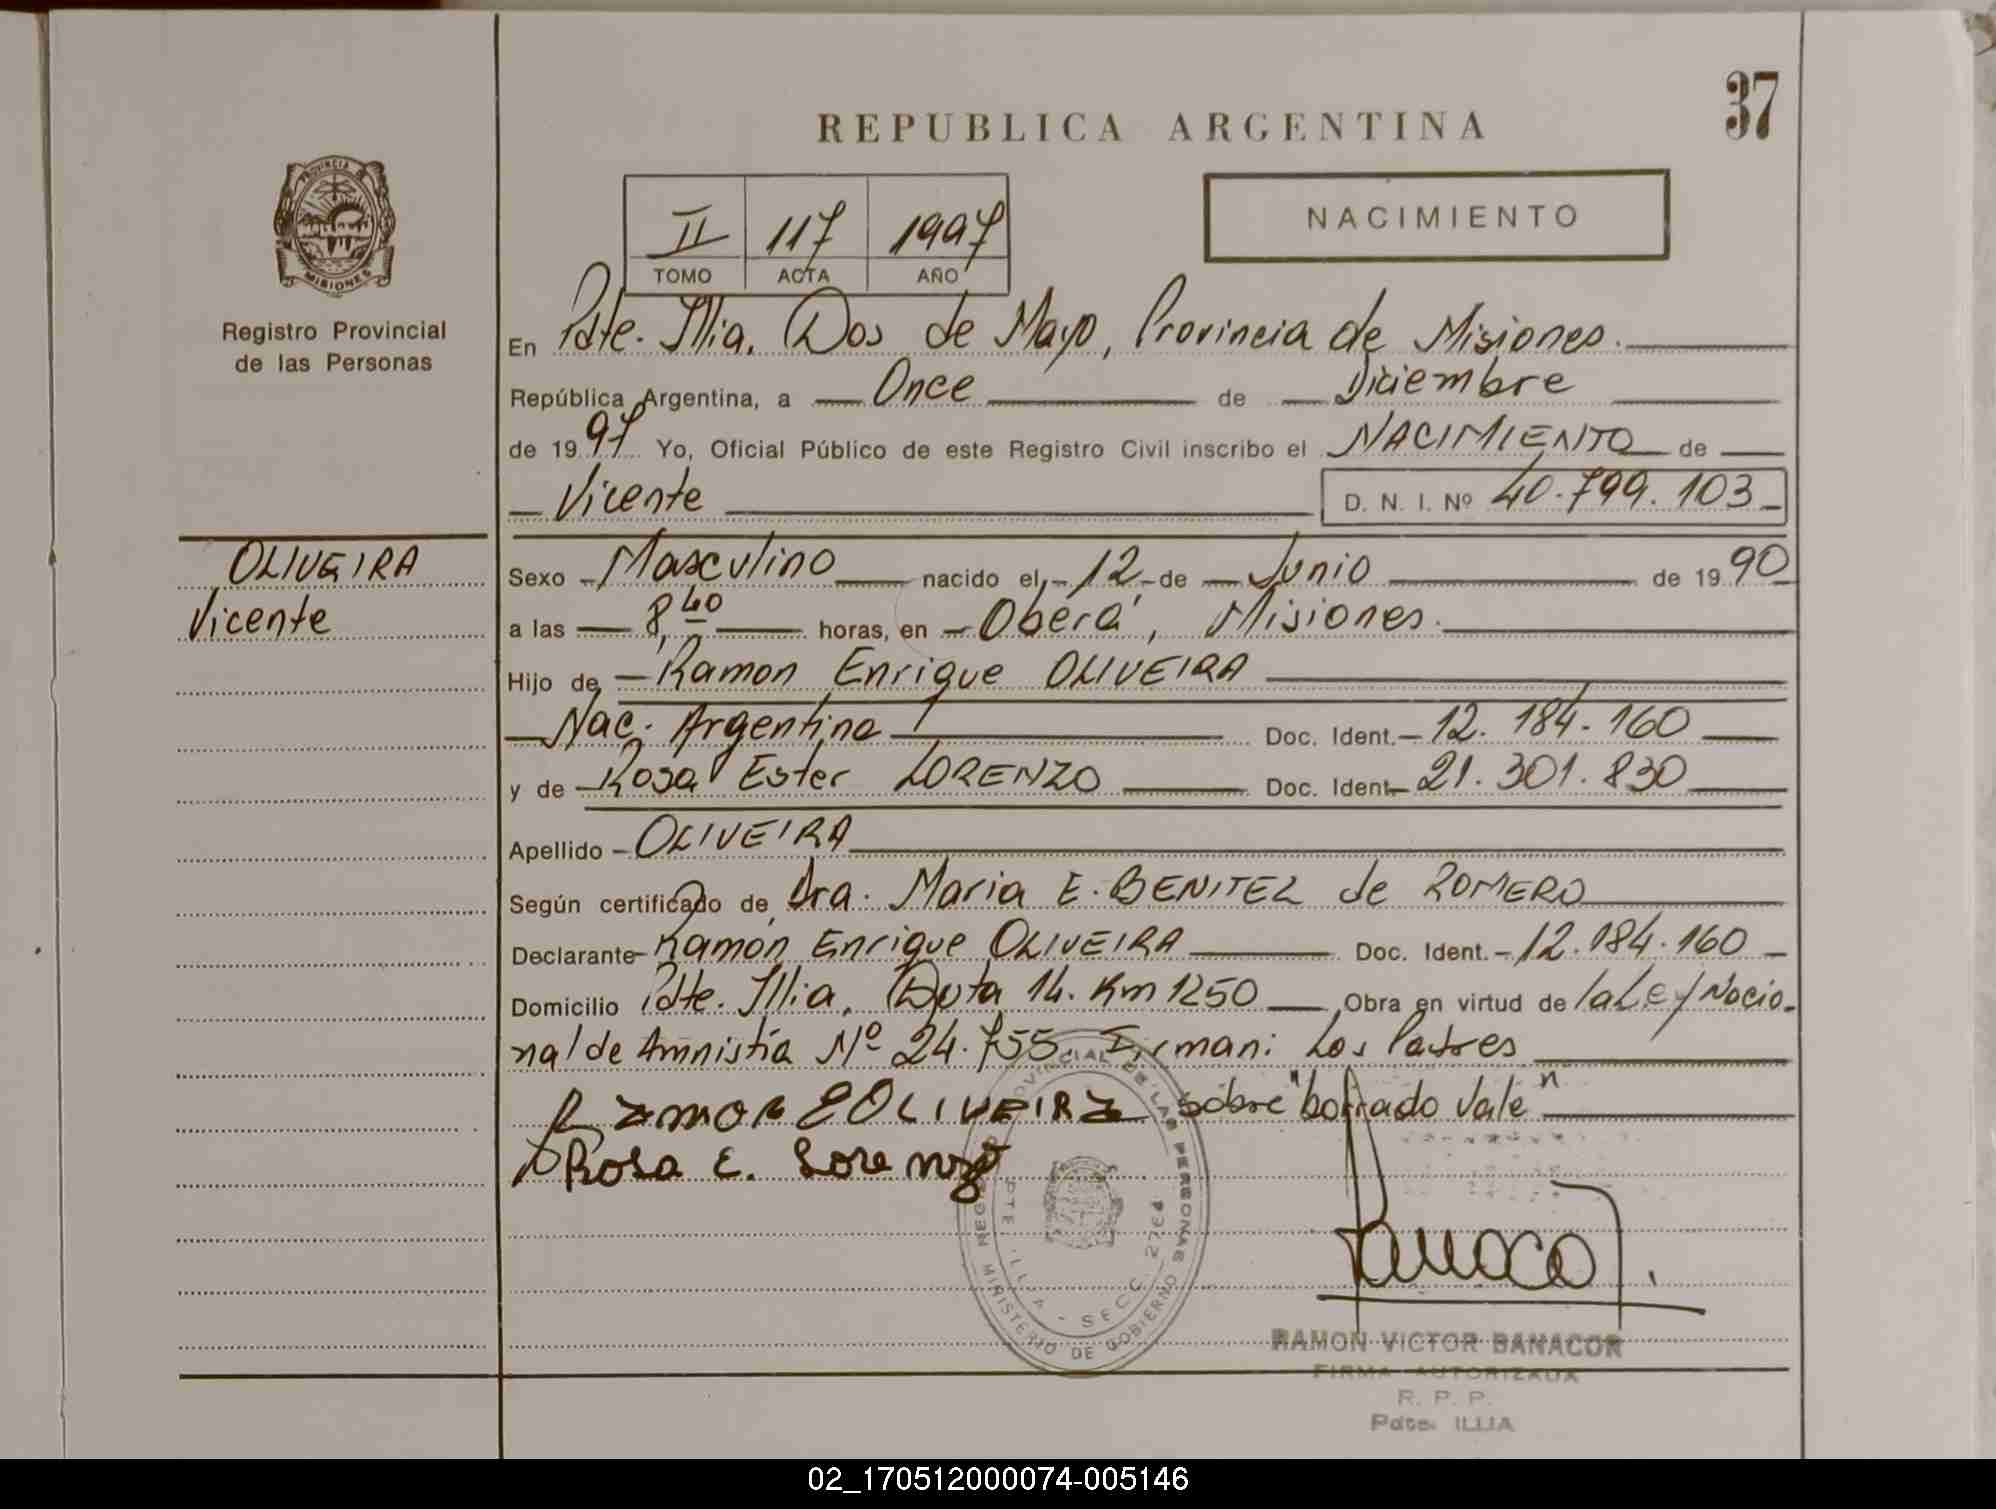 37
REPUBLICA ARGENTINA
PROVINCIA D
MISIONES
Registro Provincial
de las Personas
II 117 1997
TOMO ACTA AÑO
NACIMIENTO
En Pdte. Illia. Dos de Mayo, Provincia de Misiones.
República Argentina, a Once de Diciembre
de 1997 Yo, Oficial Público de este Registro Civil inscribo el NACIMIENTO de
Vicente D. N. I. Nº 40.799.103
OLIVEIRA
Vicente
Sexo Masculino nacido el 12 de Junio de 1990
a las 8,40 horas, en Oberá, Misiones.
Hijo de Ramon Enrique OLIVEIRA
Nac. Argentina Doc. Ident. 12.184.160
y de Rosa Ester LORENZO Doc. Ident. 21.301.830
Apellido OLIVEIRA
Según certificado de Dra. Maria E. BENITEZ de ROMERO
Declarante Ramón Enrique OLIVEIRA Doc. Ident. 12.184.160
Domicilio Pdte. Illia. Ruta 14. Km 1250 Obra en virtud de la Ley Nacio-
nal de Amnistía Nº 24.755. Firman: Los Padres
RAMON E OLIVEIRA sobre "borrado Vale"
Rosa E. Lorenzo
REGISTRO PROVINCIAL DE LAS PERSONAS
MINISTERIO DE GOBIERNO
PTE. ILLIA - SECC. 2764
RAMON VICTOR BANACOR
FIRMA AUTORIZADA
R. P. P.
Pdte. ILLIA
02_170512000074-005146